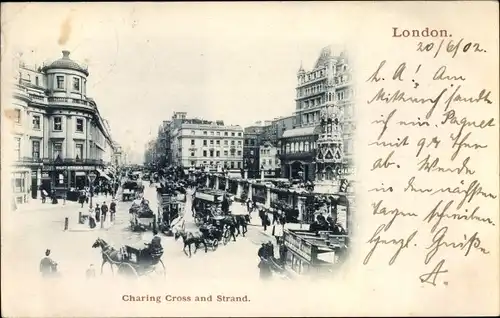 London.
20/6/02
L. A! Am
Mittwoch sandte
ich ein Paquet
mit
ab. Werde
in den nächsten
Tagen schreiben
Herzl. Grüße
A
CHANCE
Charing Cross and Strand.